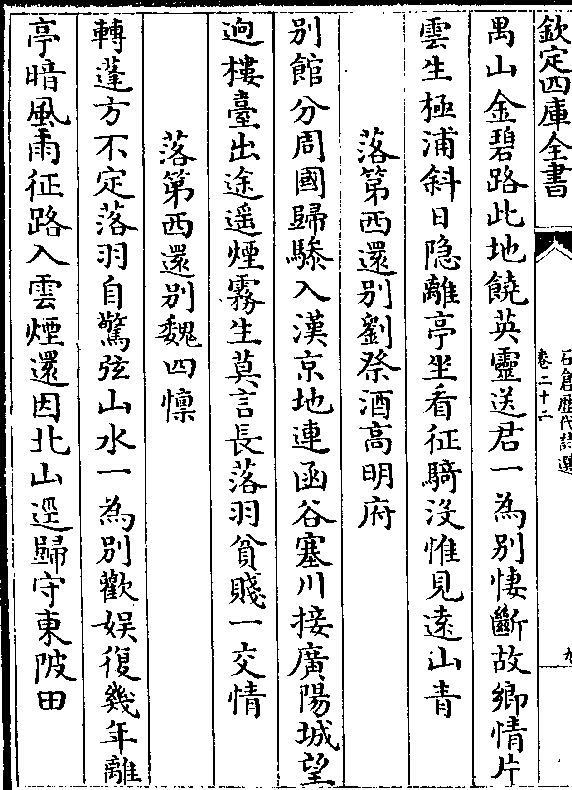 欽定四庫全書
石倉歴代詩選
卷二十二
九
禺山金碧路此地饒英靈送君一為別悽斷故鄉情片
雲生極浦斜日隐離亭坐看征騎没惟見遠山青
落第西還别劉祭酒高明府
别館分周國歸驂入漢京地連函谷塞川接廣陽城望
逈樓臺出途遥煙霧生莫言長落羽貧賤一交情
落第西還别魏四懔
轉蓬方不定落羽自驚弦山水一為別歡娱復幾年離
亭暗風雨征路入雲煙還因北山逕歸守東陂田